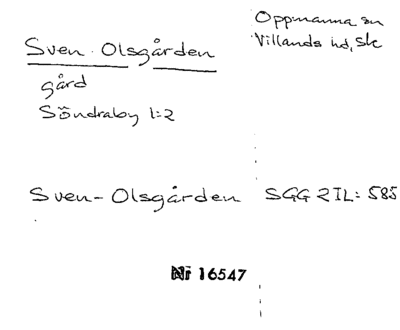 Oppmanna sn
Villands hd, Sk
Sven Olsgården
gård
Söndraby 1:2
Sven-Olsgården SGG 2 IL: 585
Nr 16547